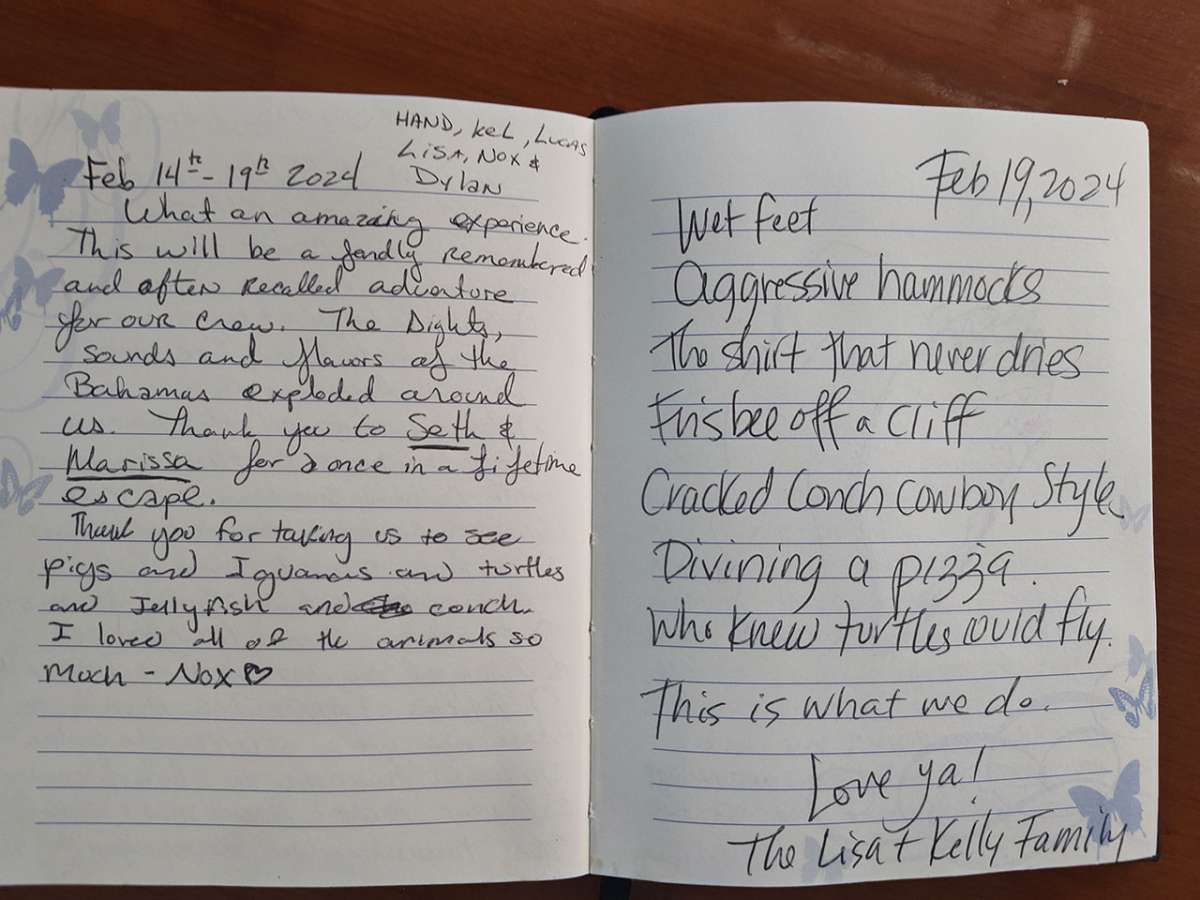 HAND, KEL, LUCAS
LISA, NOX &
DYLAN
Feb 14th - 19th 2024
What an amazing experience.
This will be a fondly remembered
and often recalled adventure
for our crew. The Sights,
sounds and flavors of the
Bahamas exploded around
us. Thank you to Seth &
Marissa for a once in a lifetime
escape.
Thank you for taking us to see
pigs and Iguanas and turtles
and Jellyfish and conch.
I loved all of the animals so
much - NOX ♡
Feb 19, 2024
Wet feet
Aggressive hammocks
The shirt that never dries
Frisbee off a cliff
Cracked Conch Cowboy Style
Divining a pizza.
Who knew turtles could fly.
This is what we do.
Love ya!
The Lisa + Kelly Family